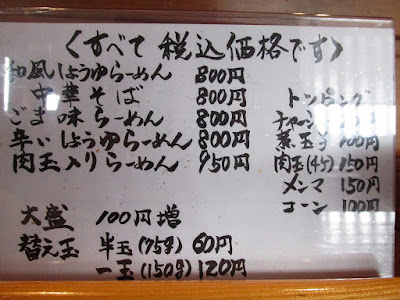 〈すべて税込価格です〉
和風しょうゆらーめん 800円
中華そば 800円
ごま味らーめん 800円
辛いしょうゆらーめん 800円
肉玉入りらーめん 950円
大盛 100円増
替え玉 半玉(75g)60円
一玉(150g)120円
トッピング
チャーシュー
煮玉子 100円
肉玉(4ケ)150円
メンマ 150円
コーン 100円